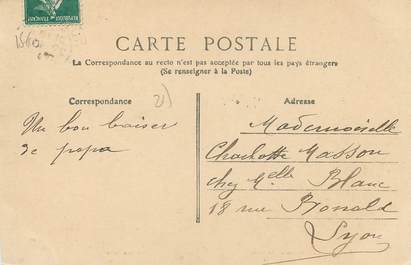 CARTE POSTALE
La Correspondance au recto n'est pas acceptée par tous les pays étrangers
(Se renseigner à la Poste)
Correspondance
Un bon baiser
de papa
Adresse
Mademoiselle
Charlotte Masson
chez Melle Blanc
18 rue Bonald
Lyon